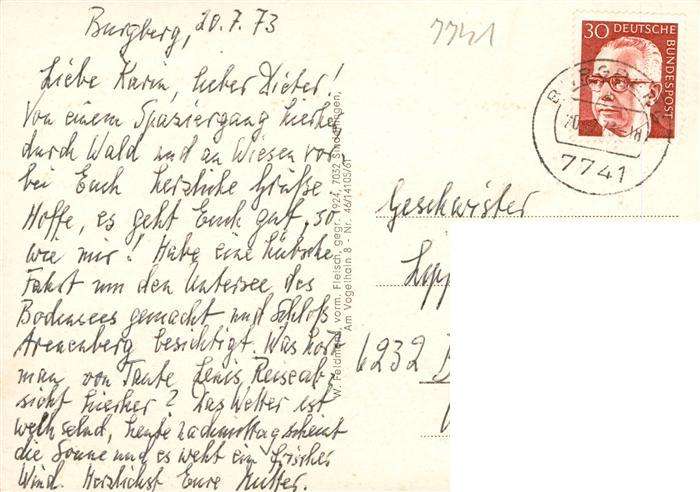 Burgberg, 20.7.73
7741
30 DEUTSCHE BUNDESPOST
BURGBERG
7741
Liebe Karin, lieber Dieter!
Von einem Spaziergang hierhe
durch Wald und an Wiesen vor
bei Euch herzliche Grüße.
Hoffe, es geht Euch gut, so
wie mir! Habe eine hübsche
Fahrt um den Untersee des
Bodensees gemacht und Schloß
Arenenberg besichtigt. Was hört
man von Tante Lenis Reiseab-
sicht hierher? Das Wetter ist
wechselnd, heute nachmittag scheint
die Sonne und es weht ein frischer
Wind. Herzlichst Eure Mutter.
W. Feldmann, vorm. Fleisch, gegr. 1924, 7032
Am Vogelhain 8 - Nr. 46/14105/61
Geschwister
Lepp
6232